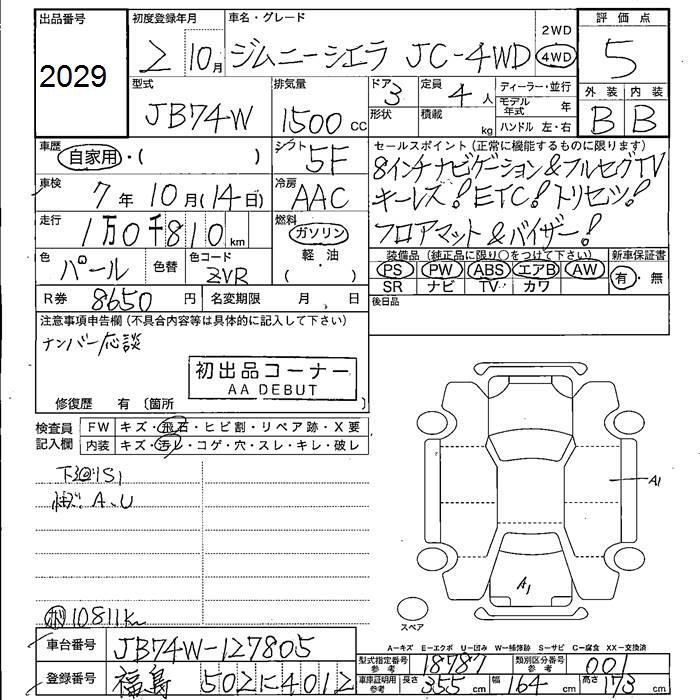 出品番号 初度登録年月 車名・グレード 評価点
2029 2 10月 ジムニーシエラ JC-4WD 2WD 4WD 5
型式 排気量 ドア 3 定員 4人 ディーラー・並行 外装 内装
JB74W 1500cc 形状 積載 kg モデル年式 年 ハンドル 左・右 B B
車歴 自家用・( ) シフト 5F セールスポイント(正常に機能するものに限ります)
8インチナビゲーション&フルセグTV
車検 7年10月(14日) 冷房 AAC キーレス!ETC!トリセツ!
走行 1万0千810km 燃料 ガソリン フロアマット&バイザー!
色 パール 色替 色コード ZVR (軽・油) 装備品(純正品に限り○をつけて下さい) 新車保証書
PS PW ABS エアB AW 有・無
SR ナビ TV カワ
R券 8650円 名変期限 月 日 後日品
注意事項申告欄(不具合内容等は具体的に記入して下さい)
ナンバー応談
初出品コーナー
AA DEBUT
修復歴 有〔箇所 〕
検査員 FW キズ・飛石・ヒビ割・リペア跡・X要
記入欄 内装 キズ・汚レ・コゲ・穴・スレ・キレ・破レ
下回りS1
A1
A、U
A1
10811km
スペア
A-キズ E-エクボ U-凹み W-補修跡 S-サビ C-腐食 XX-交換済
車台番号 JB74W-127805
型式指定番号 参考 18787 類別区分番号 参考 001
登録番号 福島 502に4012
車庫証明用 参考 長さ 355cm 幅 164cm 高さ 173cm